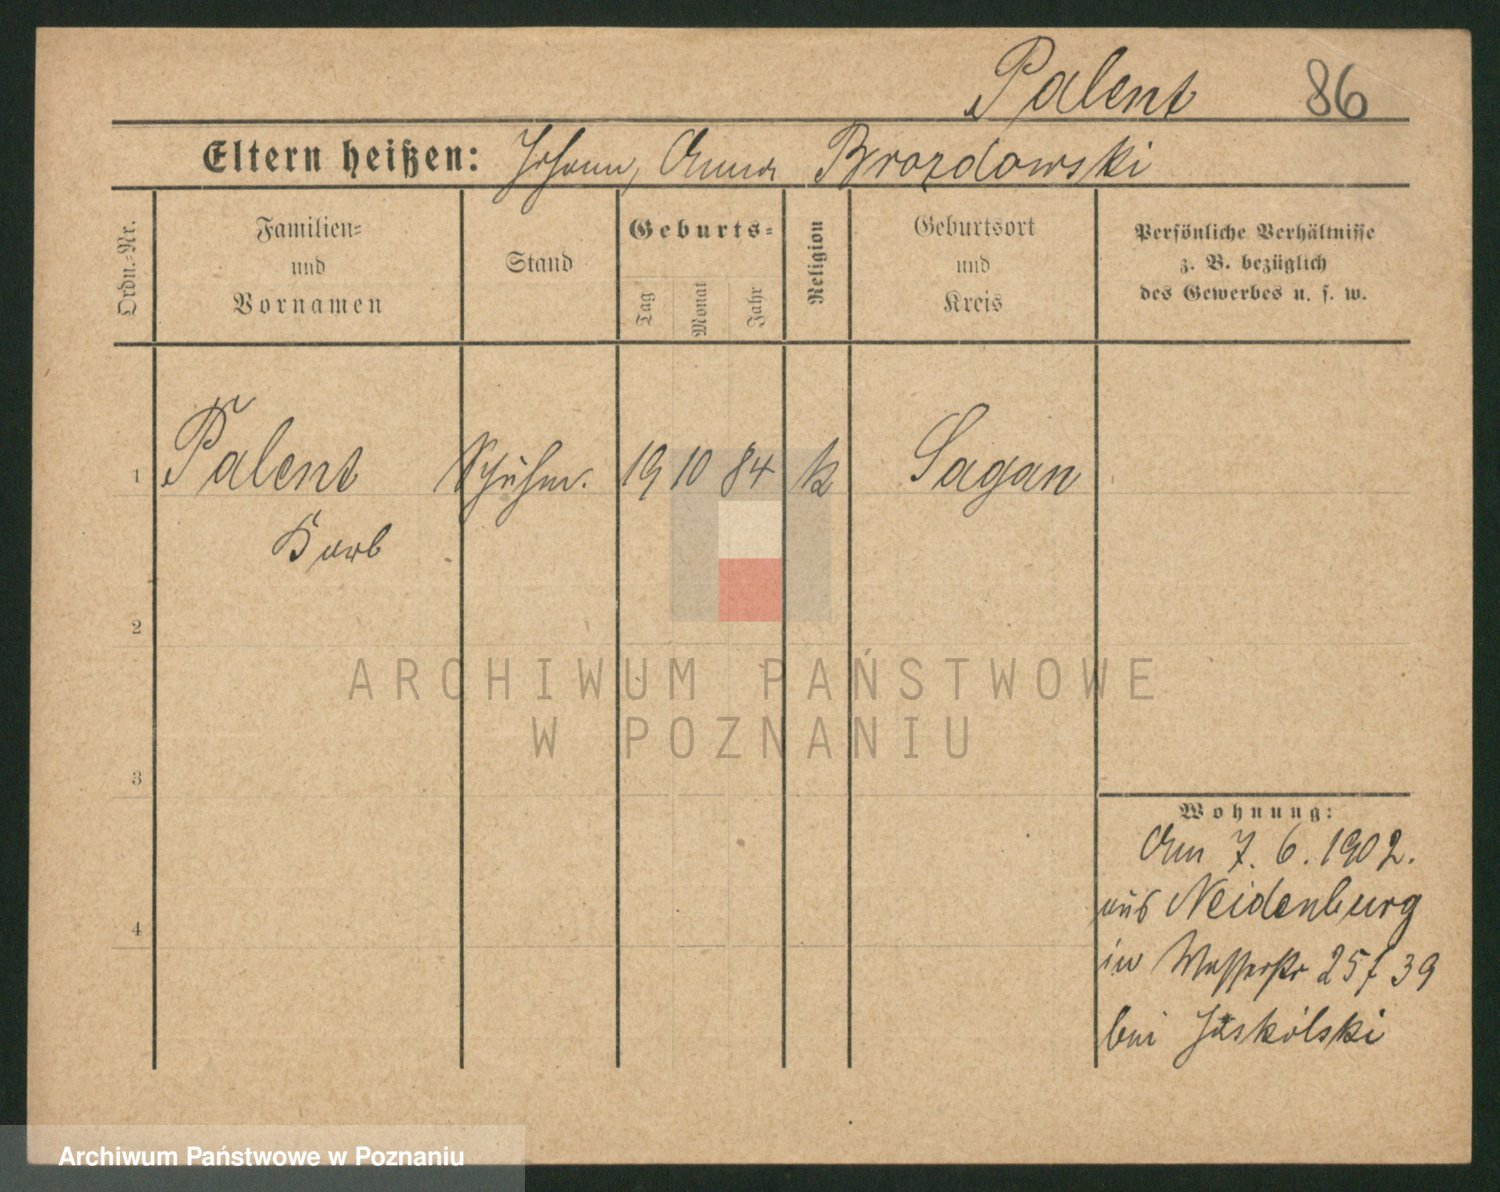 Palent 86
Eltern heißen: Johann, Anna Brozdowski
Ordn.-Nr.
Familien-
und
Vornamen
Stand
Geburts-
Tag
Monat
Jahr
Religion
Geburtsort
und
Kreis
Persönliche Verhältnisse
z. B. bezüglich
des Gewerbes u. s. w.
1 Palent Schuhm. 19 10 84 k Sagan
2
3
4
Wohnung:
Am 7. 6. 1902.
aus Neidenburg
in Wasserstr 25 / 39
bei Jaskólski
ARCHIWUM PAŃSTWOWE
W POZNANIU
Archiwum Państwowe w Poznaniu